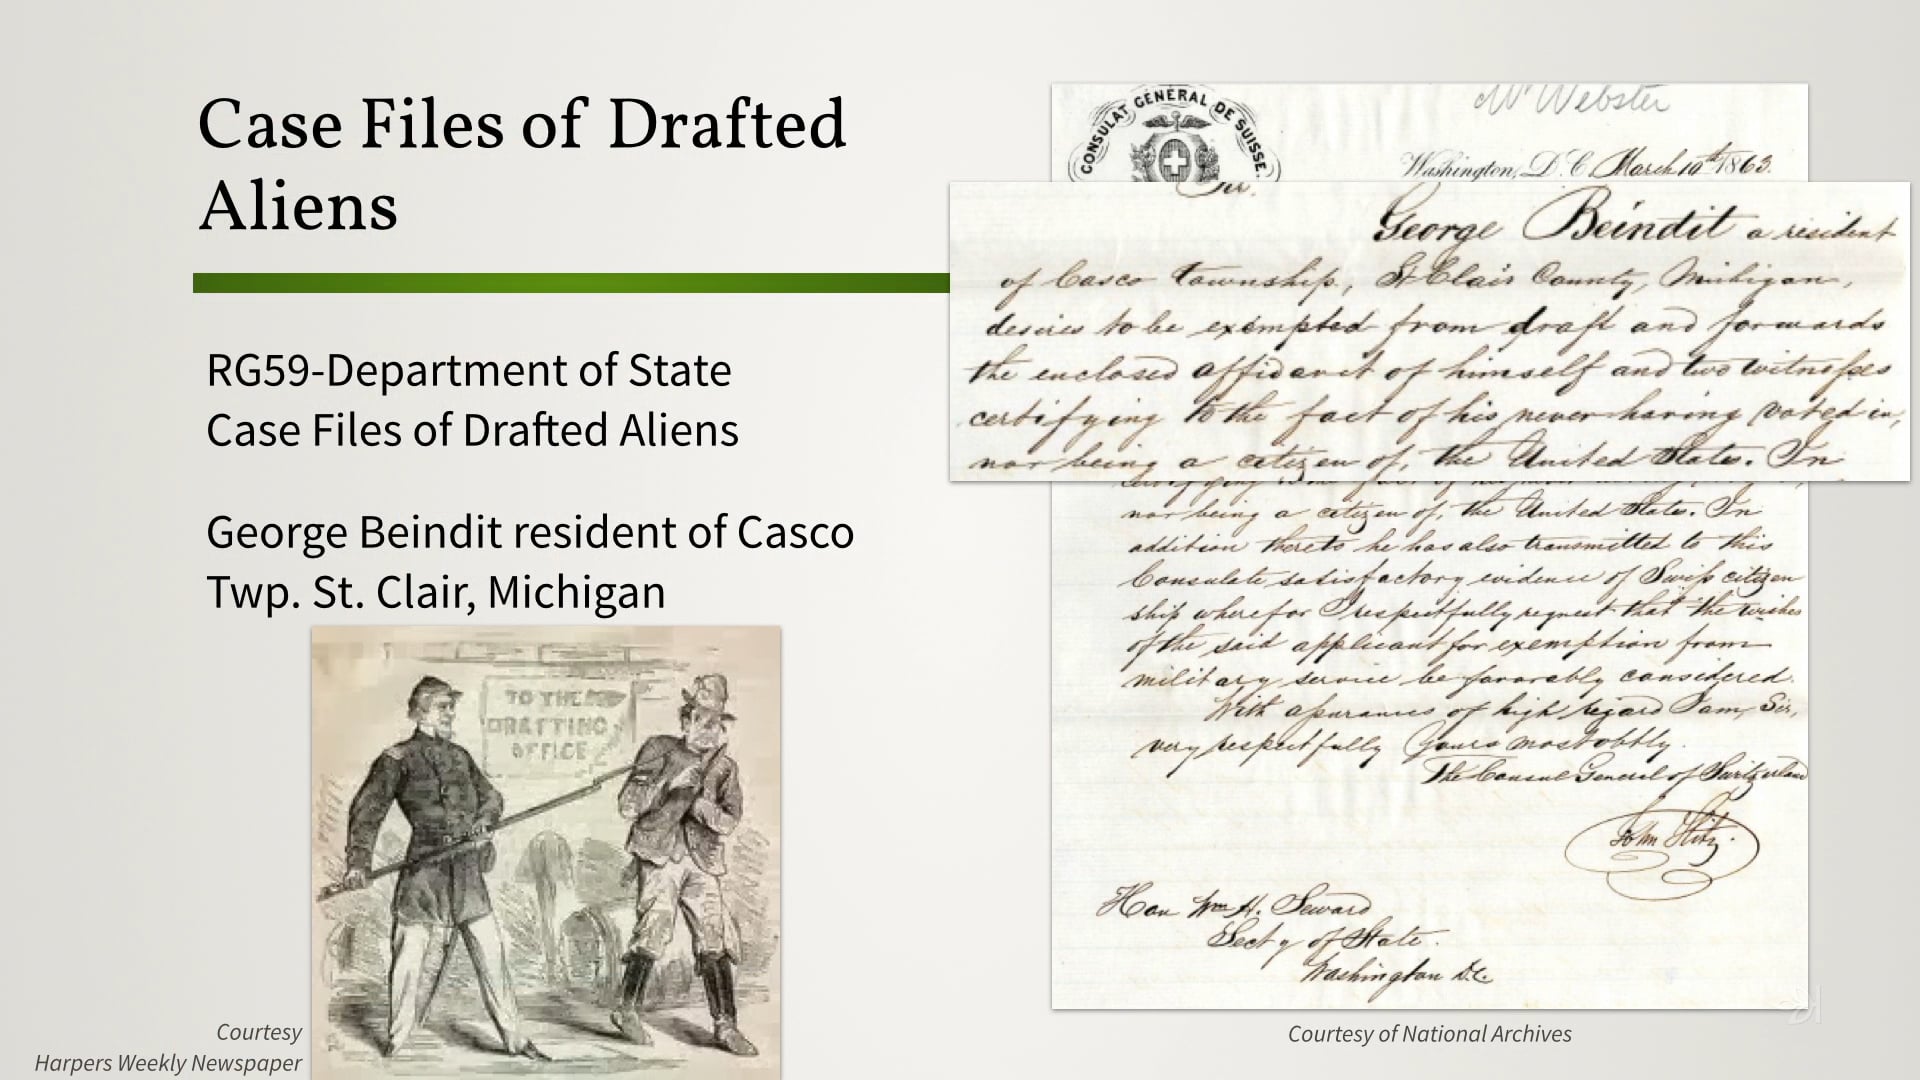 Case Files of Drafted
Aliens
RG59-Department of State
Case Files of Drafted Aliens
George Beindit resident of Casco
Twp. St. Clair, Michigan
TO THE
DRAFTING
OFFICE
Courtesy
Harpers Weekly Newspaper
CONSULAT GÉNÉRAL DE SUISSE.
Mr Webster
Washington, D. C. March 10th 1863.
Sir.
George Beindit a resident
of Casco township, St Clair County, Michigan,
desires to be exempted from draft and forwards
the enclosed affidavit of himself and two witnesses
certifying to the fact of his never having voted in,
nor being a citizen of, the United States. In
nor being a citizen of, the United States. In
addition thereto he has also transmitted to this
Consulate satisfactory evidence of Swiss citizen
ship wherefor I respectfully request that the wishes
of the said applicant for exemption from
military service be favorably considered.
With assurances of high regard I am, Sir,
very respectfully Yours most obtly.
The Consul General of Switzerland
John Hitz
Hon Wm H. Seward
Secty of State.
Washington D.C.
Courtesy of National Archives